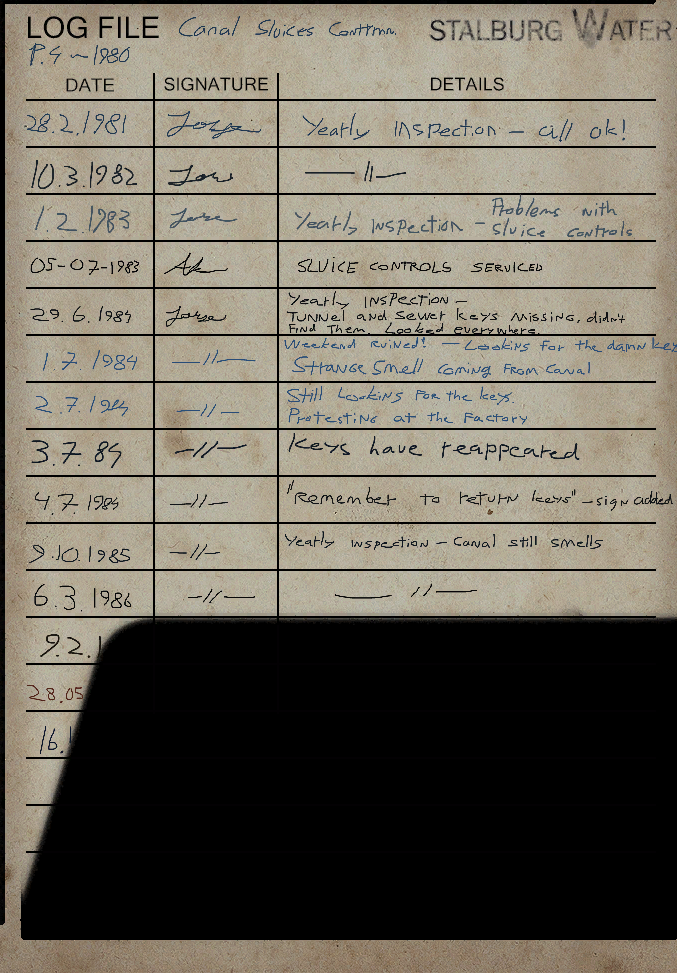 LOG FILE Canal Sluices Controll. STALBURG WATER
P.4 ~ 1980
DATE SIGNATURE DETAILS
28.2.1981 Yearly inspection – all ok!
10.3.1982 —〃—
1.2.1983 Yearly inspection – Problems with
sluice controls
05-07-1983 SLUICE CONTROLS SERVICED
29.6.1984 Yearly inspection –
Tunnel and sewer keys missing, didn't
find them. Looked everywhere.
1.7.1984 —〃— Weekend ruined! – Looking for the damn keys
Strange smell coming from canal
2.7.1984 —〃— Still looking for the keys.
Protesting at the factory
3.7.84 —〃— Keys have reappeared
4.7.1984 —〃— "Remember to return keys" – sign added
9.10.1985 —〃— Yearly inspection – Canal still smells
6.3.1986 —〃— —〃—
9.2.1
28.05
16.1